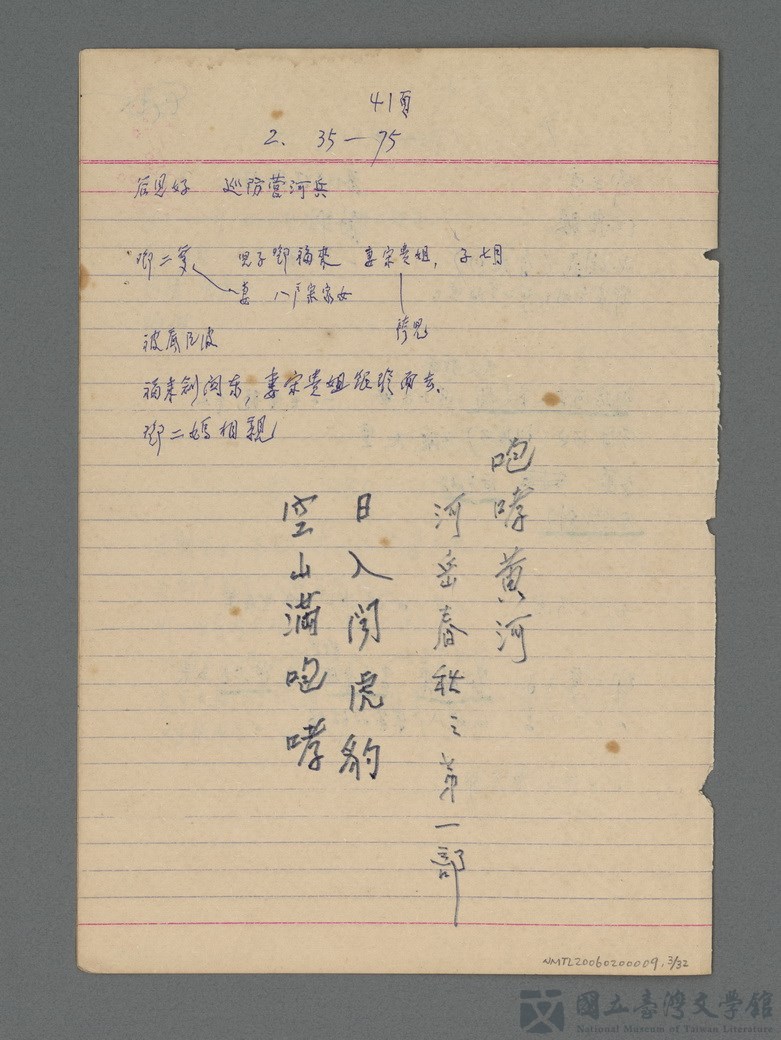 41頁
2. 35—75
巡防营河兵
二爹 兒子 福來 妻宋贵姐, 子七月
妻 八戶宋家女
福来创関东, 妻宋贵姐 而去.
二媽相親
咆哮黄河
河岳春秋之第一部
日入聞虎豹
空山滿咆哮
NMTL20060200009, 3/32
國立臺灣文學館
National Museum of Taiwan Literature